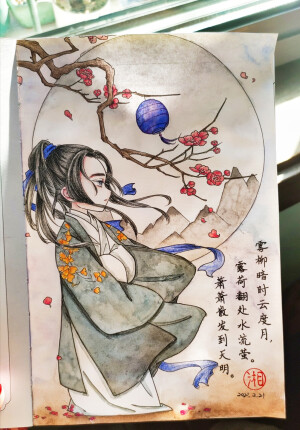 雾柳暗时云度月,
露荷翻处水流萤。
萧萧散发到天明。
湘
2021.2.21